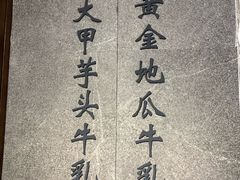 黄金地瓜牛乳
大甲芋头牛乳